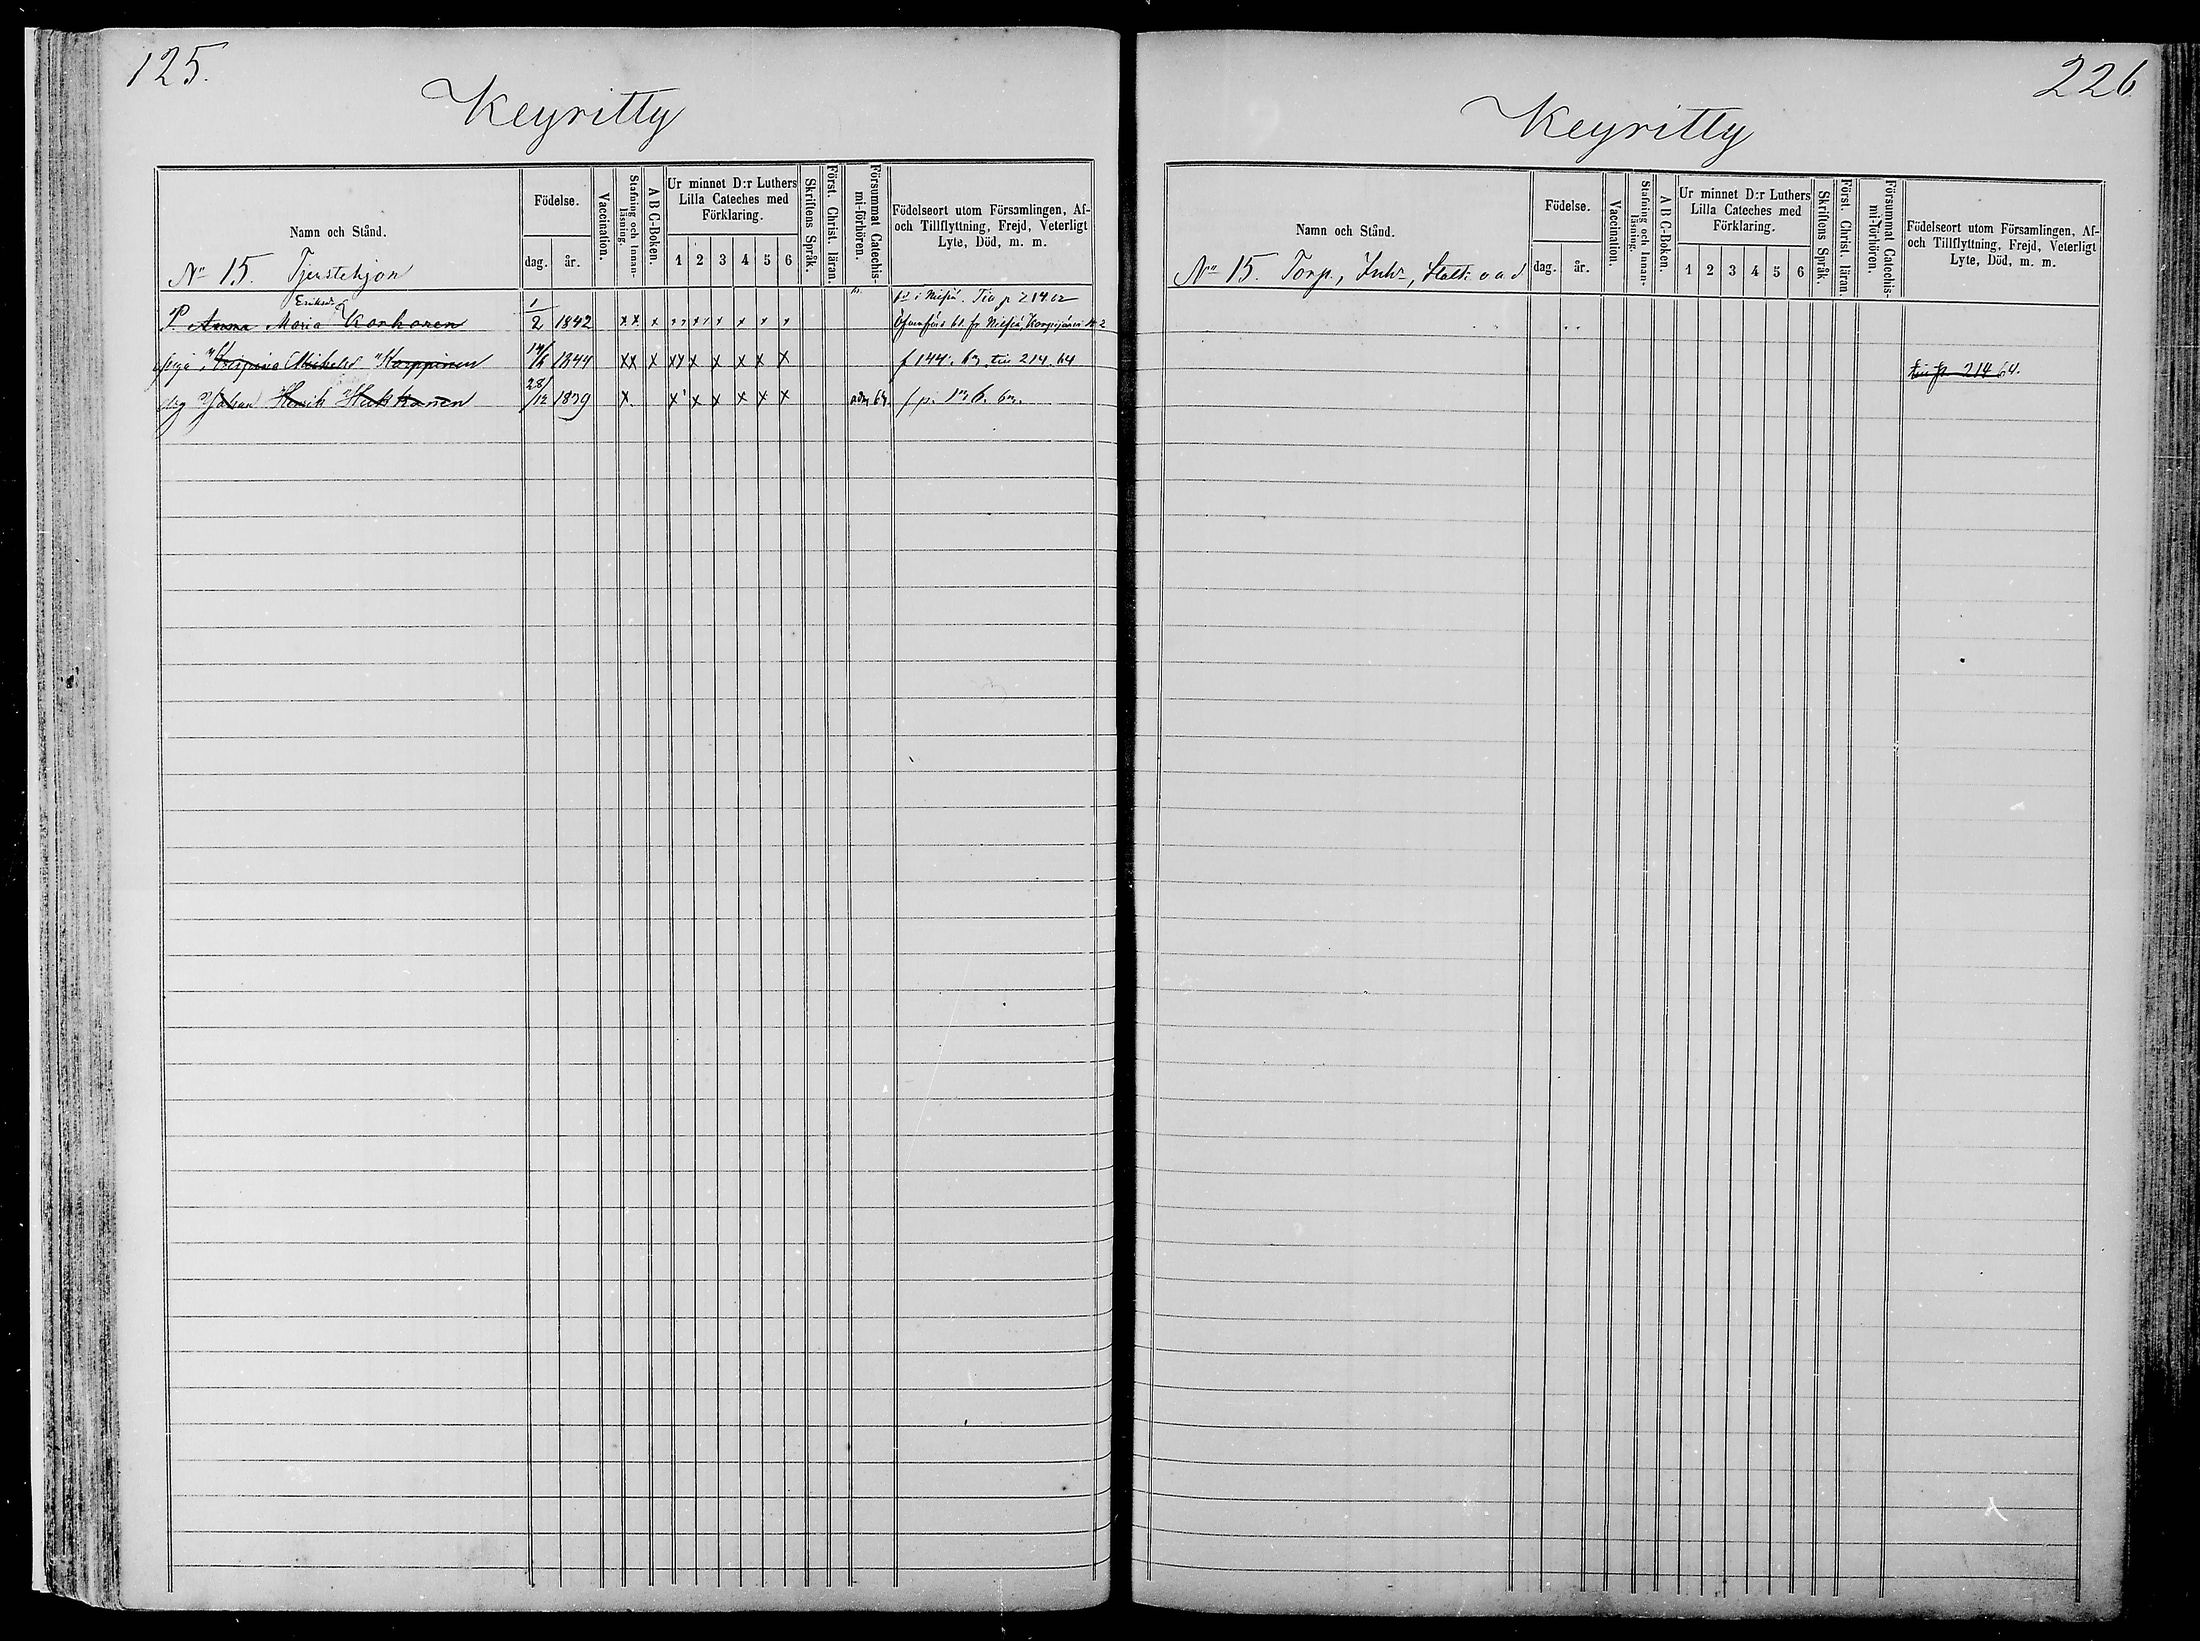 125.
Keyritty
Namn och Stånd.
Födelse.
dag. år.
Vaccination.
Stafning och Innan-
läsning.
A B C-Boken.
Ur minnet D:r Luthers
Lilla Cateches med
Förklaring.
1 2 3 4 5 6
Skriftens Språk.
Först. Christ. läran.
Försummat Catechis-
mi-förhören.
Födelseort utom Församlingen, Af-
och Tillflyttning, Frejd, Veterligt
Lyte, Död, m. m.
No 15. Tjenstehjon
Eriksd
P Anna Maria Korhonen 1/2 1842 x x x x x x x x x
i Nilsiä. p 214. 62
fr Nilsiä
piga Mikelsd Karppinen 1844 xx x xx x x x x x f 144. 63. 214. 64
dg Johan Henrik Hakkanen 28/12 1839 x x x x x x x 63. f p. 63.
226
Keyritty
Namn och Stånd.
Födelse.
dag. år.
Vaccination.
Stafning och Innan-
läsning.
A B C-Boken.
Ur minnet D:r Luthers
Lilla Cateches med
Förklaring.
1 2 3 4 5 6
Skriftens Språk.
Först. Christ. läran.
Försummat Catechis-
mi-förhören.
Födelseort utom Församlingen, Af-
och Tillflyttning, Frejd, Veterligt
Lyte, Död, m. m.
No 15. Torp., Inh-,
p 214 64.